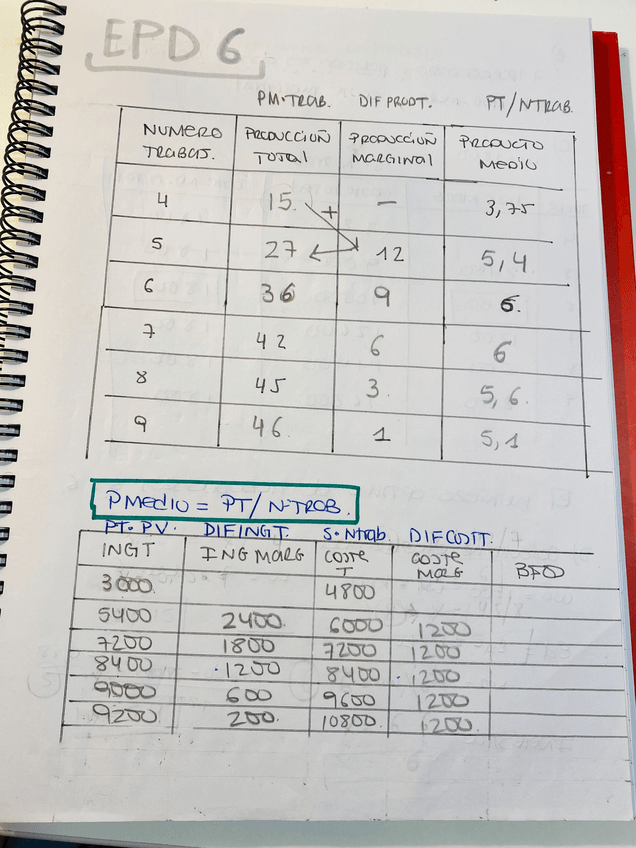 EPD 6
PM·TRAB. DIF PRODT. PT/NTRAB.
NUMERO TRABAJ. PRODUCCIÓN TOTAL PRODUCCIÓN MARGINAL PRODUCTO MEDIO
4 15. + — 3,75
5 27 12 5,4
6 36 9 6.
7 42 6 6
8 45 3. 5,6.
9 46. 1 5,1
PMEDIO = PT/N·TROB.
PT·PV. DIFINGT. S·Ntrab. DIFCOSTT.
INGT INGMARG COSTE T COSTE MARG BFO
3000 4800
5400 2400 6000 1200
7200 1800 7200 1200
8400 ·1200 8400 ·1200
9000 600 9600 1200
9200 200. 10800. 1200.